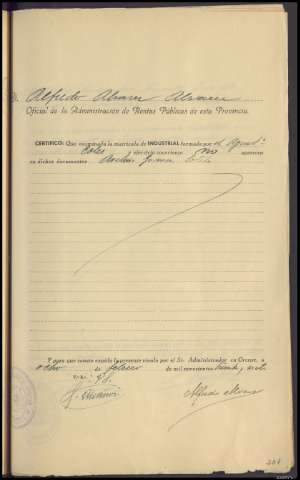 D. Alfredo Alvarez Alvarez
Oficial de la Administración de Rentas Públicas de esta Provincia.
CERTIFICO: Que examinada la matrícula de INDUSTRIAL formada por el Ayunt.º
Coles del ejercicio corriente no aparece
en dichos documentos
Y para que conste expido la presente visada por el Sr. Administrador en Orense, a
ocho de febrero de mil novecientos treinta y
V.º B.º
Alfredo Alvarez